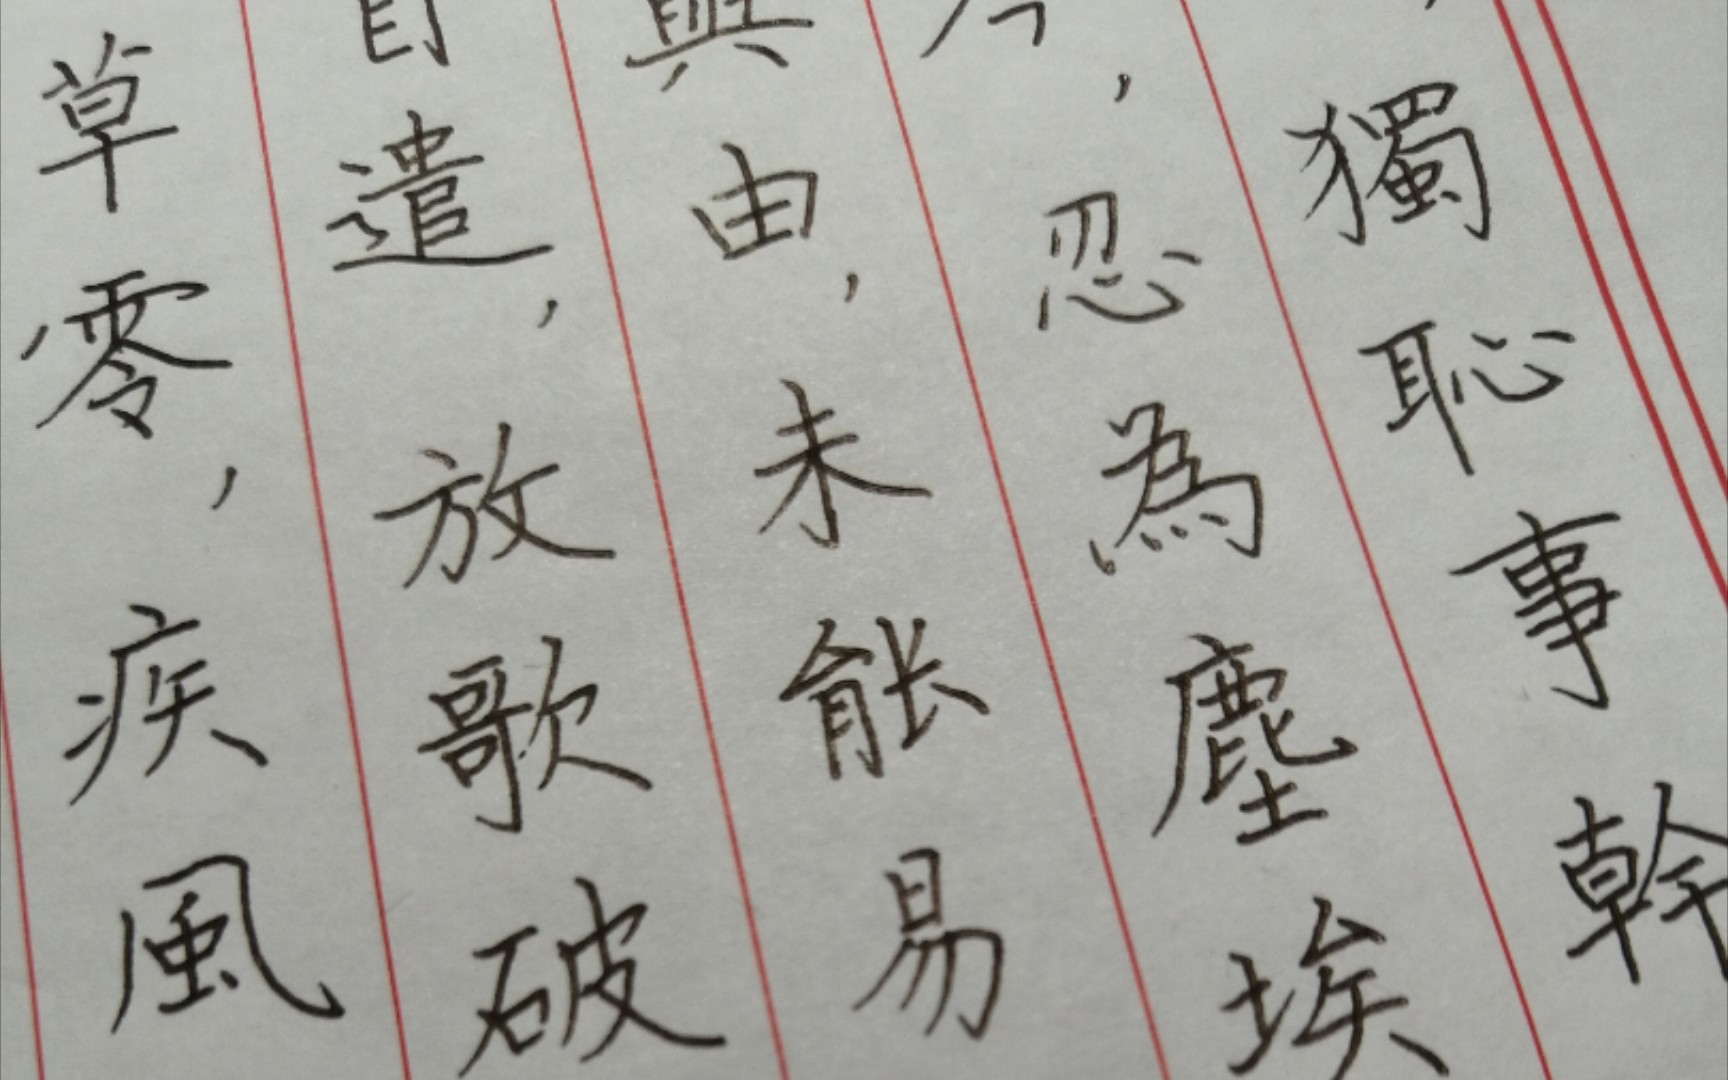 獨恥事幹
，忍為塵埃
與由，未能易
自遣，放歌破
草零，疾風